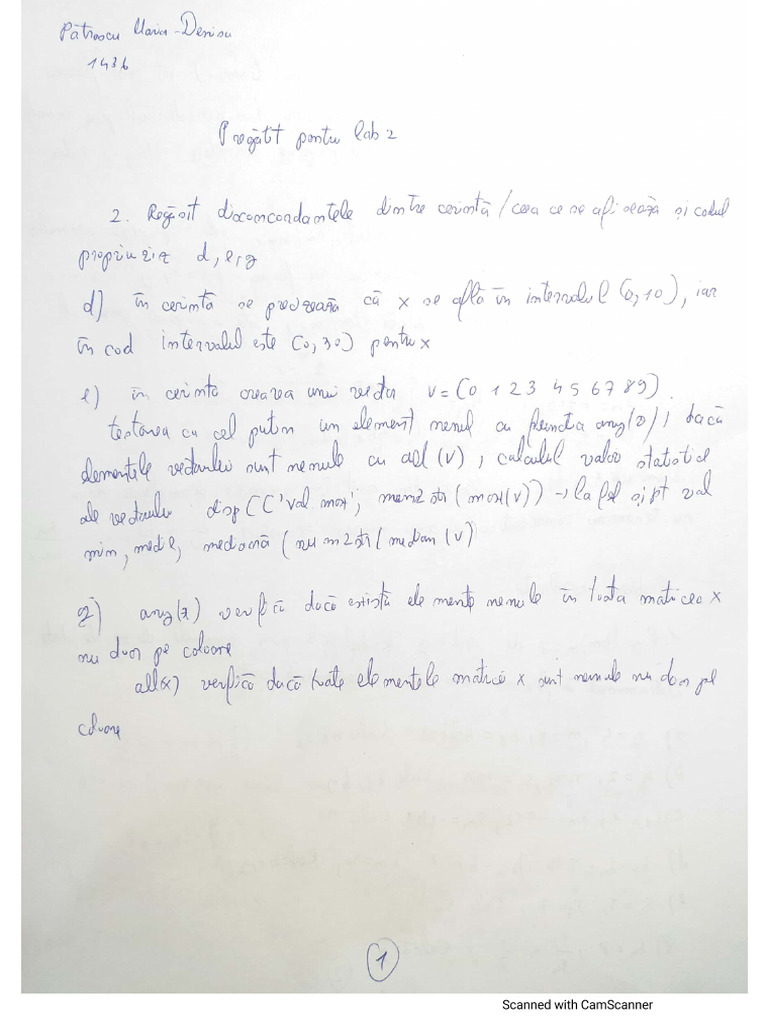 Pătrescu Maria-Denisa
143b
Pregătit pentru lab 2
2. Regăsit discomcordantele dintre cerintă / ceea ce se afisează și codul
propriu ziz d, e, g
d) în cerintă se precizează că x se află în intervalul (0,10), iar
în cod intervalul este (0,30) pentru x
e) în cerinta crearea unui vector v = (0 1 2 3 4 5 6 7 8 9).
testarea cu cel putin un element nenul cu functia any(v), dacă
elementele vectorului sunt nenule cu all (v), calculul valor statistice
ale vectorului disp(['Val max', num2str(max(v)) → la fel și pt val
min, medie, mediană (num2str(median(v)
g) any(x) verifică dacă există elemente nenule în toata matricea x
nu doar pe coloane
all(x) verifică dacă toate elementele matricii x sunt nenule nu doar pe
coloane
1
Scanned with CamScanner